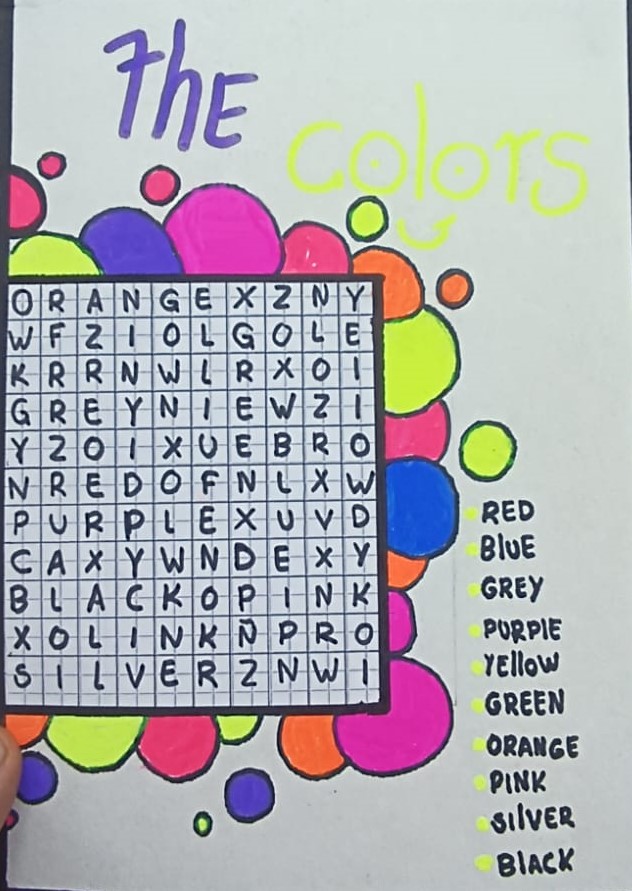 The
colors
O R A N G E X Z N Y
W F Z I O L G O L E
K R R N W L R X O I
G R E Y N I E W Z I
Y Z O I X U E B R O
N R E D O F N L X W
P U R P L E X U V D
C A X Y W N D E X Y
B L A C K O P I N K
X O L I N K Ñ P R O
S I L V E R Z N W I
RED
BlUE
GREY
PURPlE
YEllow
GREEN
ORANGE
PINK
SIlVER
BlACK